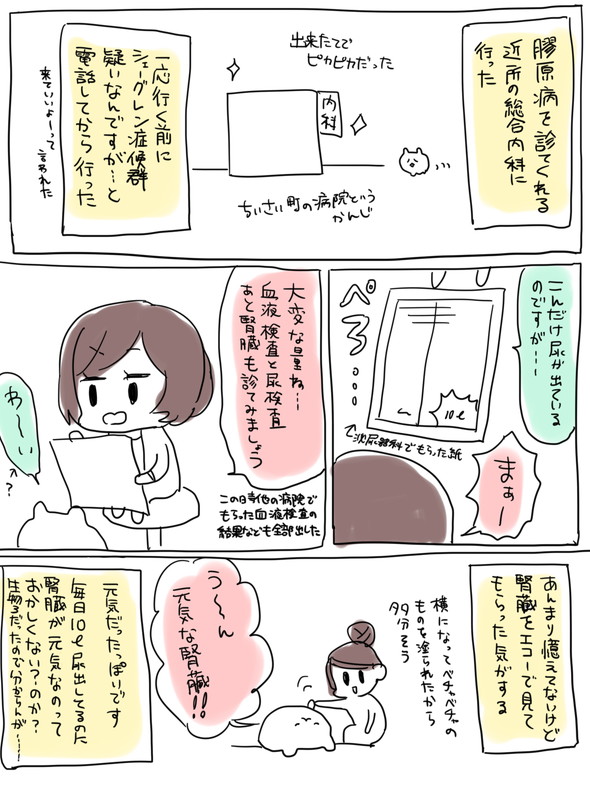 膠原病を診てくれる
近所の総合内科に
行った
出来たてで
ピカピカだった
内科
ちいさい町の病院という
かんじ
一応行く前に
シェーグレン症候群
疑いなんですが…と
電話してから行った
来ていいよーって
言われた
こんだけ尿が出ている
のですが…
ぺろ…
10ℓ
↑泌尿器科でもらった紙
まぁー
大変な量ね…
血液検査と尿検査
あと腎臓も診てみましょう
この時他の病院で
もらった血液検査の
結果なども全部出した
わーい
↑?
あんまり憶えてないけど
腎臓をエコーで見て
もらった気がする
横になってベチャベチャの
ものを塗られたから
多分そう
う〜ん
元気な腎臓!!
元気だったっぽいです
毎日10ℓ尿出してるのに
腎臓が元気なのって
おかしくない?のか?
生物2だったので分からんが……